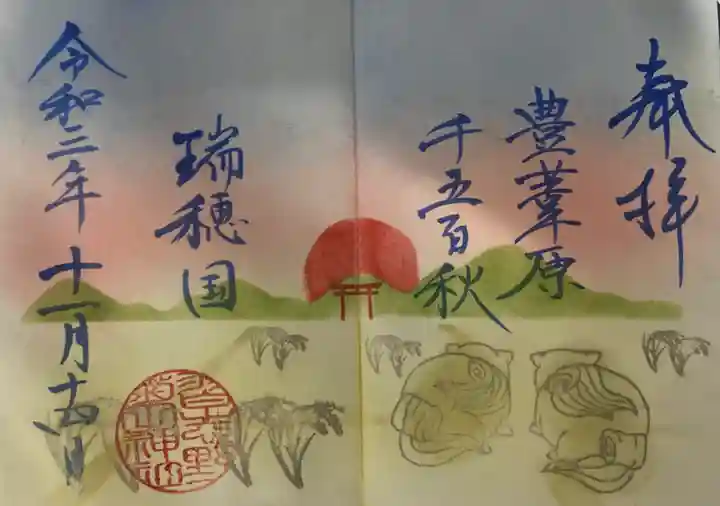 奉拝
豊葦原
千五百秋
瑞穂国
令和三年十一月十四日